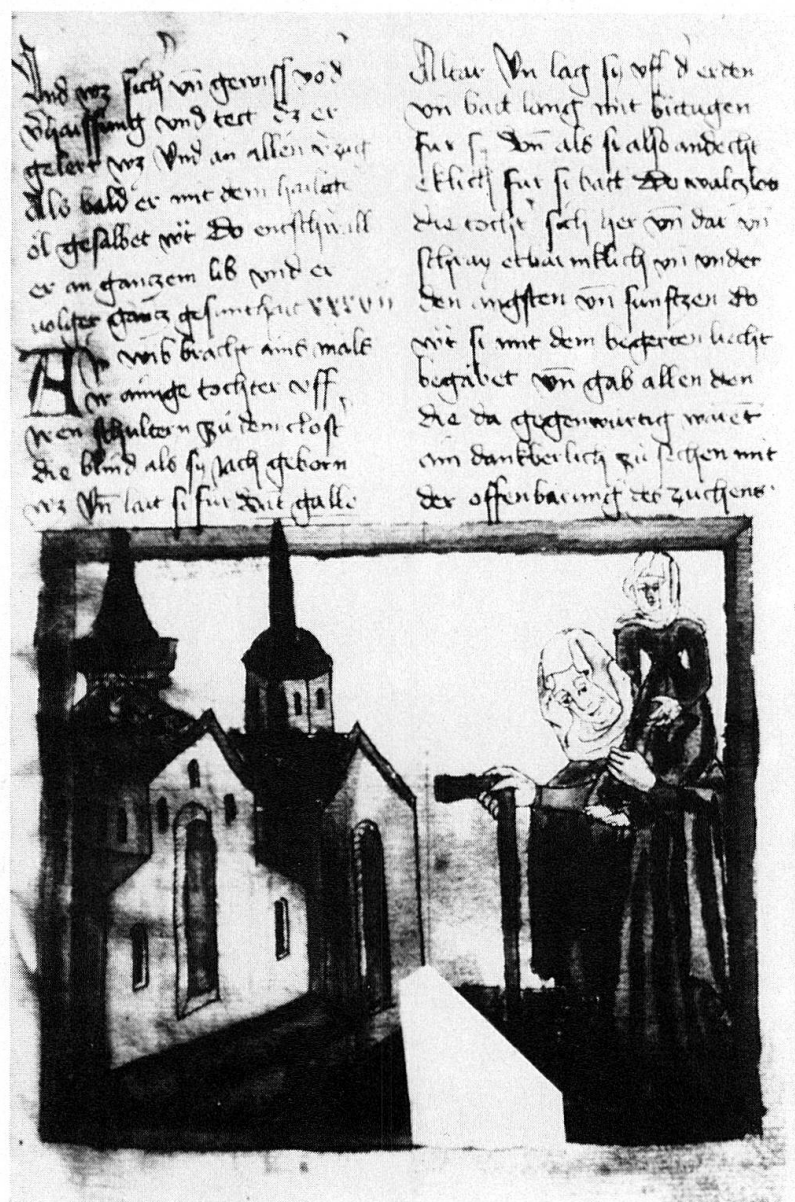 Und wz sich vn̄ gewiss vō d
vhaissung vnd tett dz er
gelert wz Vnd an allen
Als bald er mit dem hailigē
öl gesalbet wt Do entschwall
er an ganczem lib vnd er
volget gancz gesunthait XXXVII
Ain wib bracht ains mals
ir ainige tochter vff
schultern zu dem clost
die blind als sy geborn
wz Vn̄ lait si fur sant galle
Altar Vn̄ lag sy vff d erden
vn̄ batt lang mit
fur sy Vn̄ als si also andecht
eklich fur si batt Do walczlet
die tocht sich her vn̄ dar vn̄
schray erbarmklich vn̄ vnder
den angsten vn̄ sunftzen do
wt si mit dem begerten liecht
begabet vn̄ gab allen den
die da gegenwurtig warēt
ain dankberlich zu sechen mit
der offenbarung des zaichens